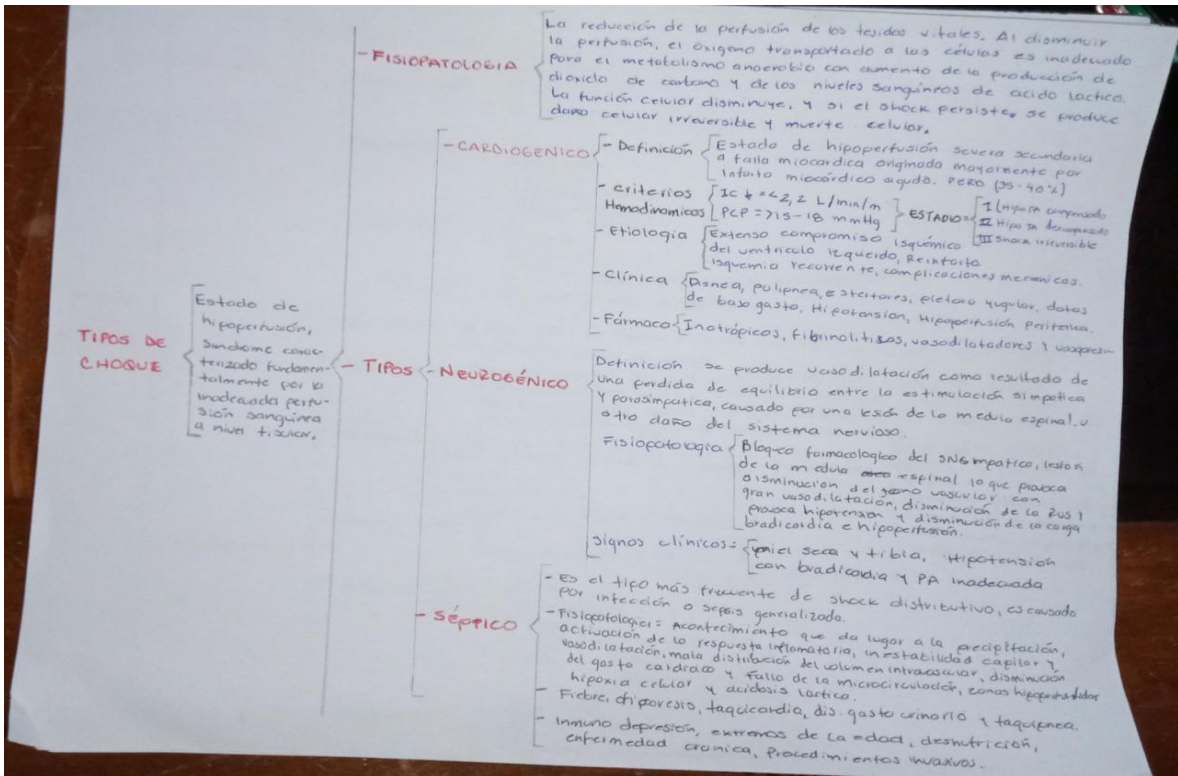 TIPOS DE
CHOQUE
Estado de
hipoperfusión,
Sindrome carac-
terizado fundamen-
talmente por la
inadecuada perfu-
sión sanguínea
a nivel tisular.
- FISIOPATOLOGIA
La reducción de la perfusión de los tejidos vitales. Al disminuir
la perfusión, el oxigeno transportado a las células es inadecuado
para el metabolismo anaerobio con aumento de la producción de
dioxido de carbono y de los niveles sanguineos de acido lactico.
La función celular disminuye, y si el shock persiste, se produce
daño celular irreversible y muerte celular.
- TIPOS
- CARDIOGENICO
- Definición
Estado de hipoperfusión severa secundaria
a falla miocardica originada mayormente por
infarto miocárdico agudo. PERO (35-40%)
- criterios
Hemodinamicos
IC = <2,2 L/min/m
PCP = >15-18 mmHg
ESTADIO=
I (HipoTA compensada
II HipoTA descompensada
III Shock irreversible
- Etiologia
Extenso compromiso isquémico
del ventriculo izquierdo, Reinfarto
isquemia recurrente, complicaciones mecanicas.
- Clínica
Disnea, polipnea, estertores, pletora yugular, datos
de bajo gasto, Hipotension, Hipoperfusión periferica.
- Fármaco
Inotrópicos, fibrinoliticos, vasodilatadores y vasopresin
- NEUROGÉNICO
Definición se produce vasodilatación como resultado de
una perdida de equilibrio entre la estimulación simpatica
y parasimpatica, causado por una lesión de la medula espinal. u
otro daño del sistema nervioso.
Fisiopatologia
Bloqueo farmacologico del SNSimpatico, lesion
de la medula espinal lo que provoca
disminucion del tono vascular con
gran vasodilatación, disminución de la RVS y
provoca hipotension y disminución de la carga
bradicardia e hipoperfusión.
signos clínicos=
piel seca y tibia, Hipotensión
con bradicardia y PA inadecuada
- SÉPTICO
- Es el tipo más frecuente de shock distributivo, es causado
por infección o sepsis generalizada.
- Fisiopatologia= Acontecimiento que da lugar a la precipitación,
activación de la respuesta inflamatoria, inestabilidad capilar y
vasodilatación, mala distribución del volumen intravascular, disminución
del gasto cardiaco y fallo de la microcirculación, zonas hipoperfundidas
hipoxia celular y acidosis lactica.
- Fiebre, diaforesis, taquicardia, dis. gasto urinario y taquipnea.
- Inmuno depresión, extremos de la edad, desnutrición,
enfermedad cronica, Procedimientos invasivos.